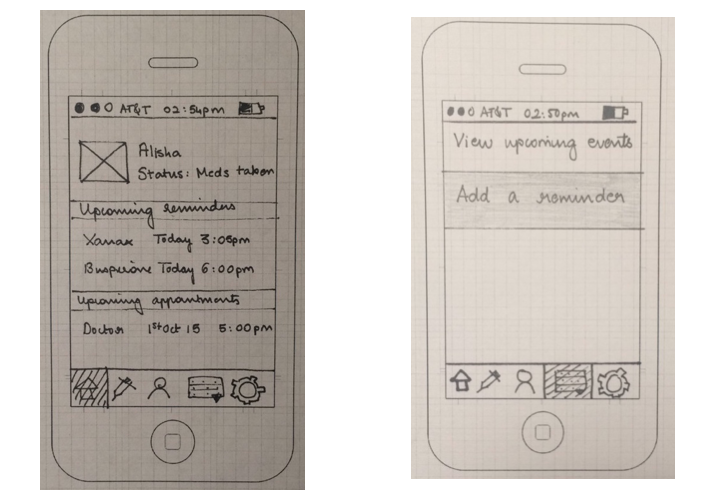 AT&T 02:54pm
Alisha
Status: Meds taken
Upcoming reminders
Xanax Today 3:05pm
Buspirone Today 6:00pm
Upcoming appointments
Doctor 1st Oct 15 5:00pm
AT&T 02:50pm
View upcoming events
Add a reminder